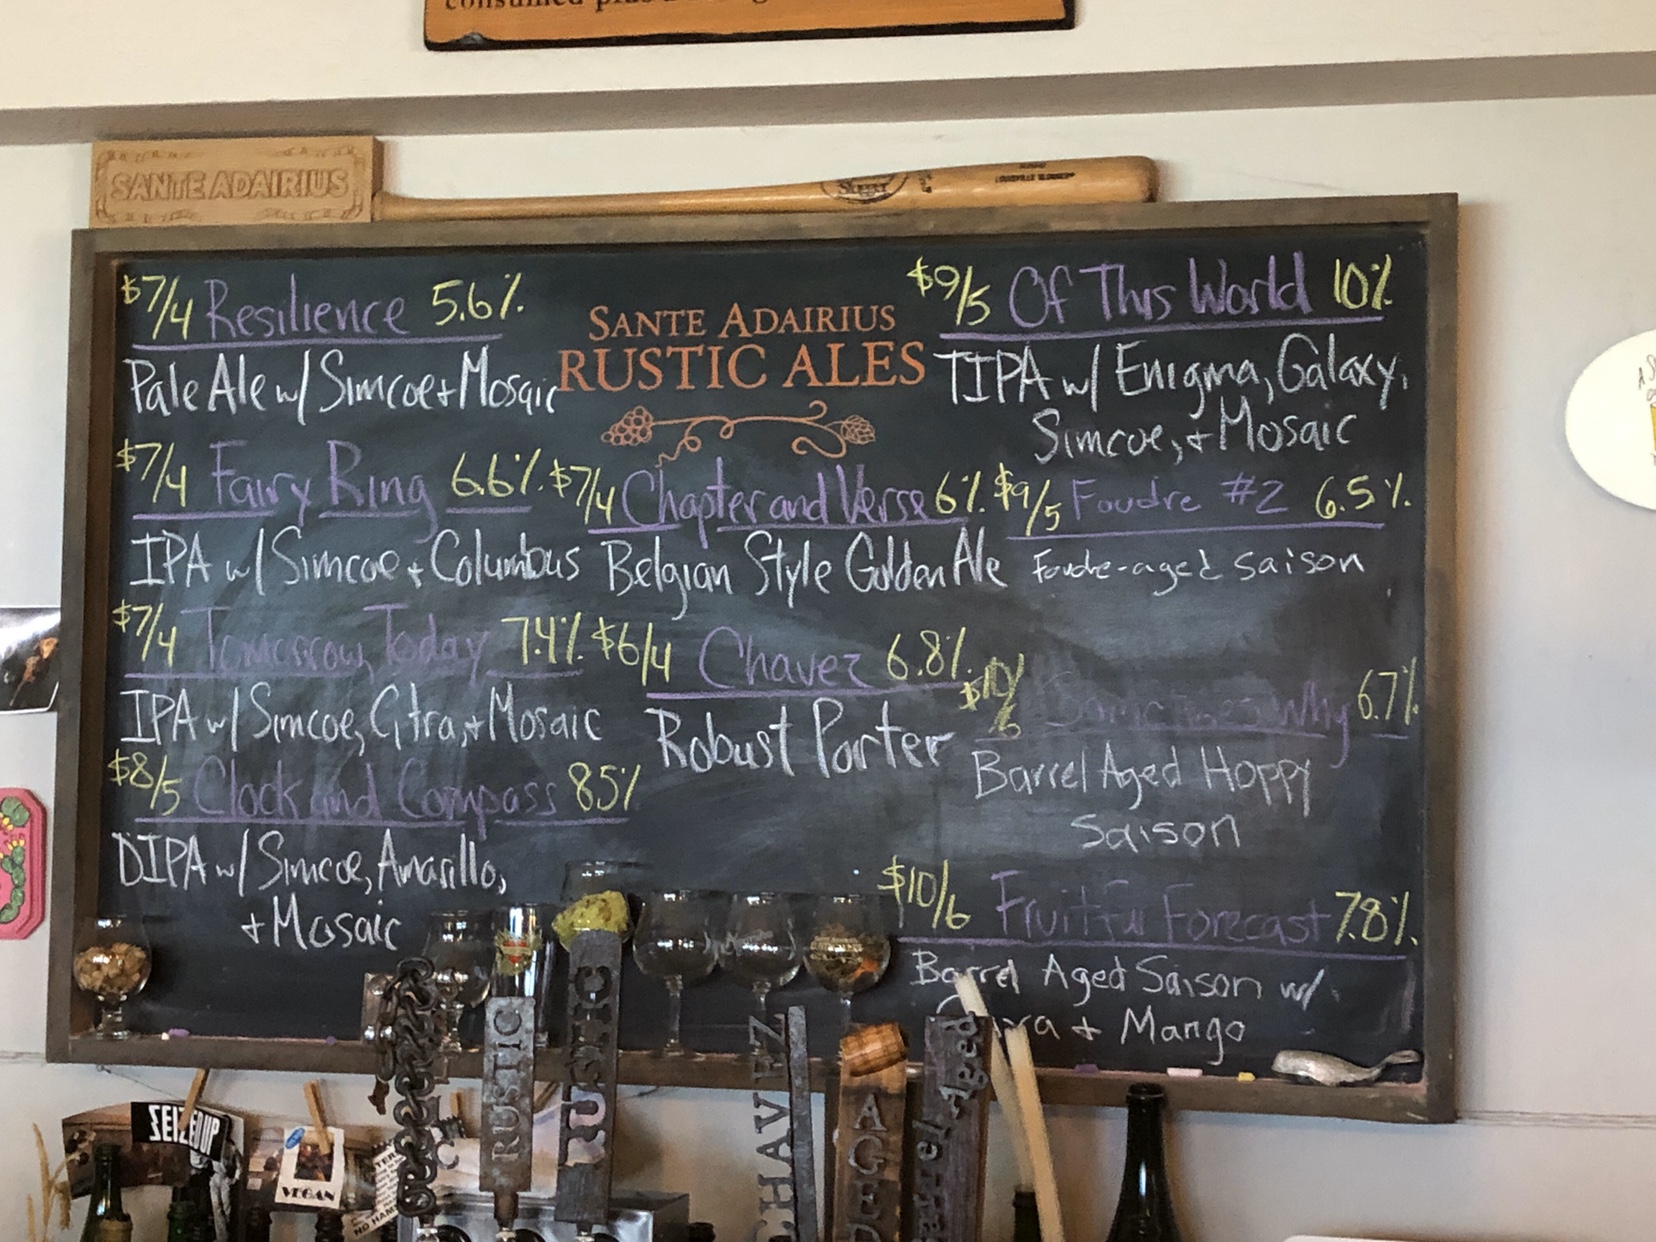 consumed plus
SANTE ADAIRIUS
LOUISVILLE SLUGGER
SANTE ADAIRIUS
RUSTIC ALES
$7/4 Resilience 5.6%
Pale Ale w/ Simcoe + Mosaic
$7/4 Fairy Ring 6.6%
IPA w/ Simcoe + Columbus
$7/4 Tomorrow, Today 7.4%
IPA w/ Simcoe, Citra, + Mosaic
$8/5 Clock and Compass 8.5%
DIPA w/ Simcoe, Amarillo,
+ Mosaic
$7/4 Chapter and Verse 6%
Belgian Style Golden Ale
$6/4 Chavez 6.8%
Robust Porter
$9/5 Of This World 10%
TIPA w/ Enigma, Galaxy,
Simcoe, + Mosaic
$9/5 Foudre #2 6.5%
Foudre-aged saison
$10/6 Sometimes Why 6.7%
Barrel Aged Hoppy
Saison
$10/6 Fruitful Forecast 7.8%
Barrel Aged Saison w/
+ Mango
RUSTIC
RUSTIC
CHAVEZ
AGED
Barrel Aged
SEIZED UP
VEGAN
NO HAR